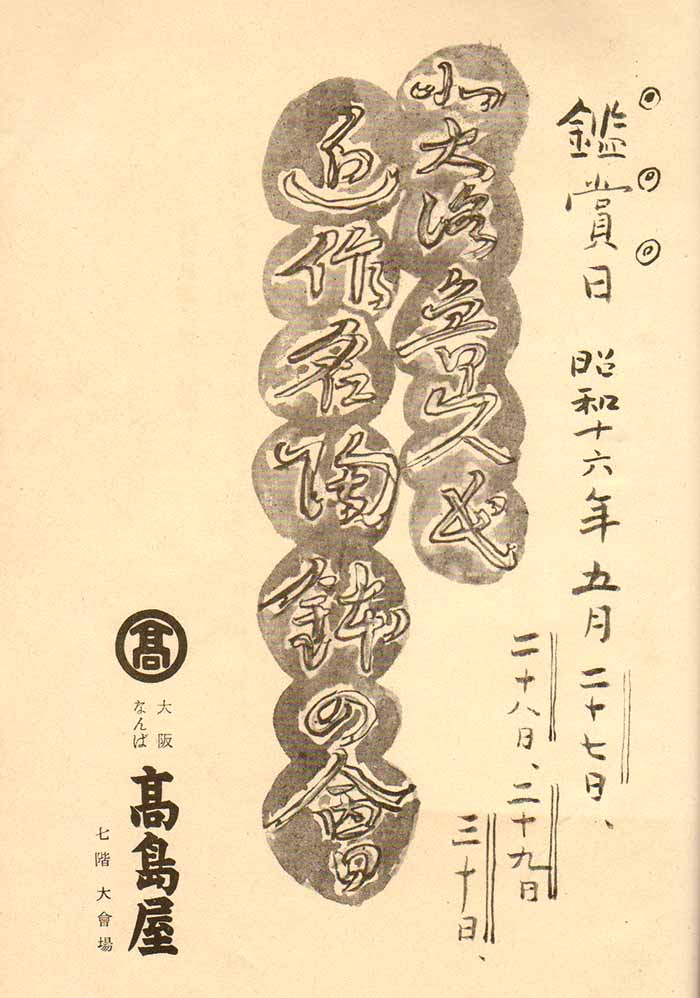 鑑賞日 昭和十六年五月二十七日、
二十八日、二十九日
三十日、
北大路魯山人氏
近作名陶鉢の會
髙
大阪
なんば
髙島屋
七階大會場